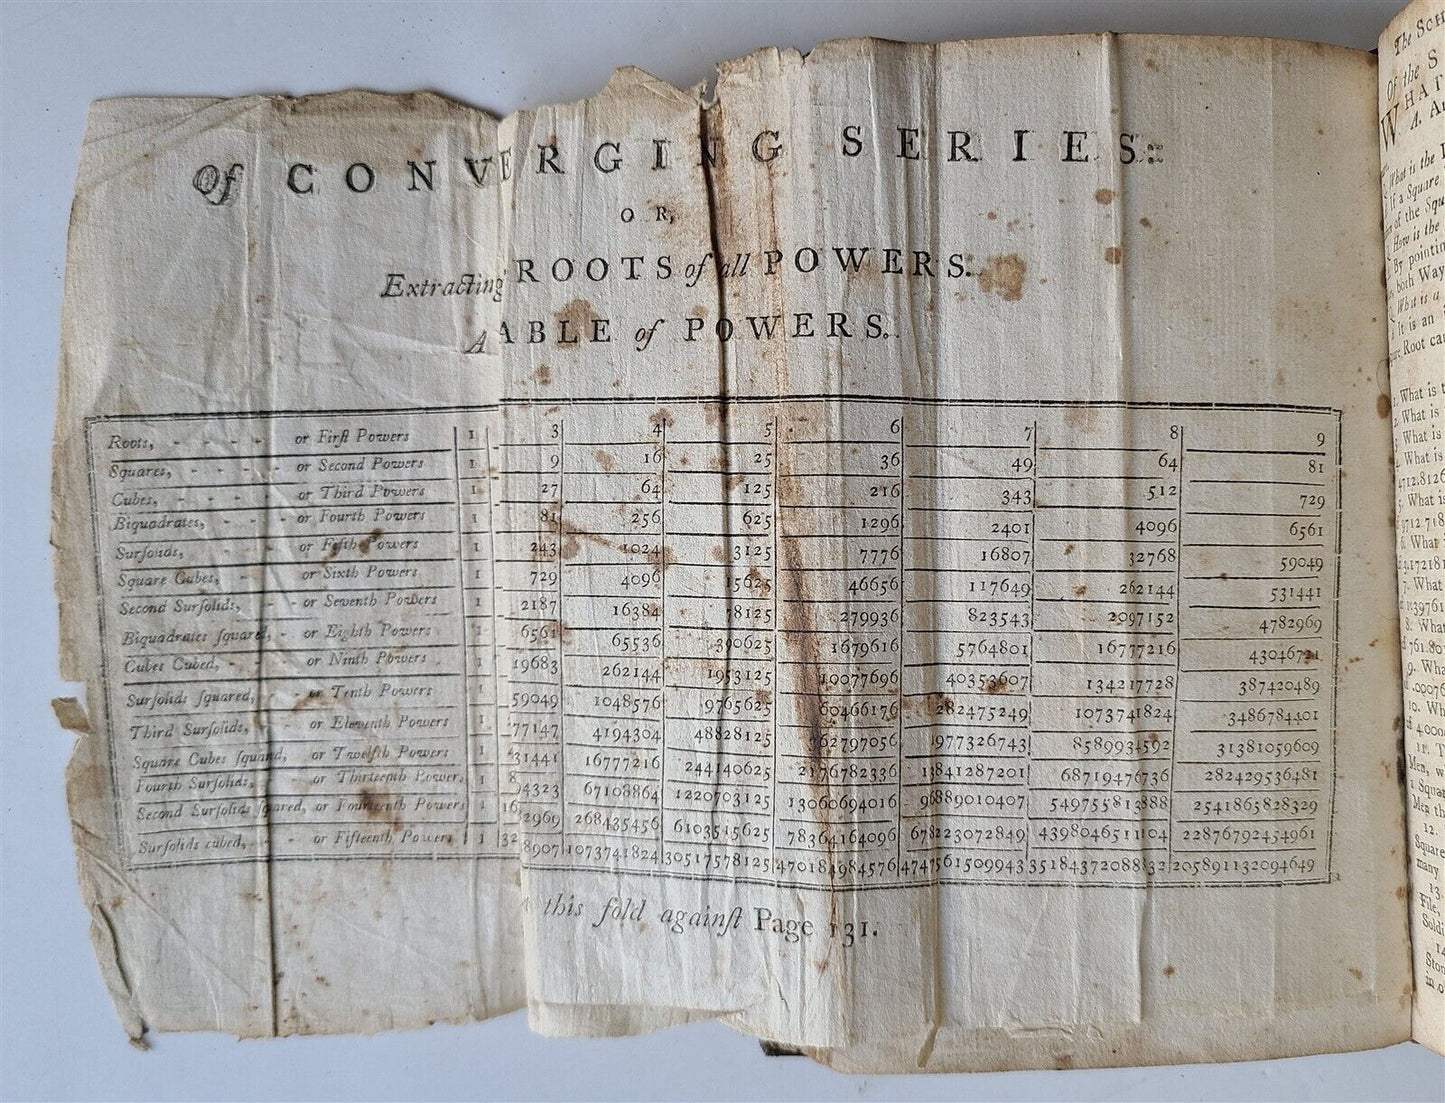 Of CONVERGING SERIES:
OR,
Extracting ROOTS of all POWERS.
A ABLE of POWERS.
Roots, - - - - or Firſt Powers 1 3 4 5 6 7 8 9
Squares, - - - - or Second Powers 1 9 16 25 36 49 64 81
Cubes, - - - - or Third Powers 1 27 64 125 216 343 512 729
Biquadrates, - - - or Fourth Powers 1 81 256 625 1296 2401 4096 6561
Surſolids, - - - or Fifth Powers 1 243 1024 3125 7776 16807 32768 59049
Square Cubes, - - or Sixth Powers 1 729 4096 15625 46656 117649 262144 531441
Second Surſolids, - - or Seventh Powers 1 2187 16384 78125 279936 823543 2097152 4782969
Biquadrates ſquared, - or Eighth Powers 1 6561 65536 390625 1679616 5764801 16777216 43046721
Cubes Cubed, - - or Ninth Powers 1 19683 262144 1953125 10077696 40353607 134217728 387420489
Surſolids ſquared, - - or Tenth Powers 1 59049 1048576 9765625 60466176 282475249 1073741824 3486784401
Third Surſolids, - - or Eleventh Powers 1 77147 4194304 48828125 362797056 1977326743 8589934592 31381059609
Square Cubes ſquared, or Twelfth Powers 1 31441 16777216 244140625 2176782336 13841287201 68719476736 282429536481
Fourth Surſolids, - - or Thirteenth Powers 1 8 94323 67108864 1220703125 13060694016 96889010407 549755813888 2541865828329
Second Surſolids ſquared, or Fourteenth Powers 1 16 2969 268435456 6103515625 78364164096 678223072849 4398046511104 22876792454961
Surſolids cubed, - - or Fifteenth Powers 1 32 8907 1073741824 30517578125 470184984576 4747561509943 35184372088832 205891132094649
this fold againſt Page 131.
The SCH
Of the S
WHAT
A. A
What is the
If a Square
of the Squ
How is the
By pointin
both Way
What is a
It is an
Root ca
What is
What is
What is
What is
4712.8126
What i
9712.718
6. What i
3.172181
7. What
8. What
761.80
9. Wha
.00076
10. Wh
4000
11. T
Men, w
Squar
Men th
12.
Square
many
13
File,
Soldi
14
Ston
in o